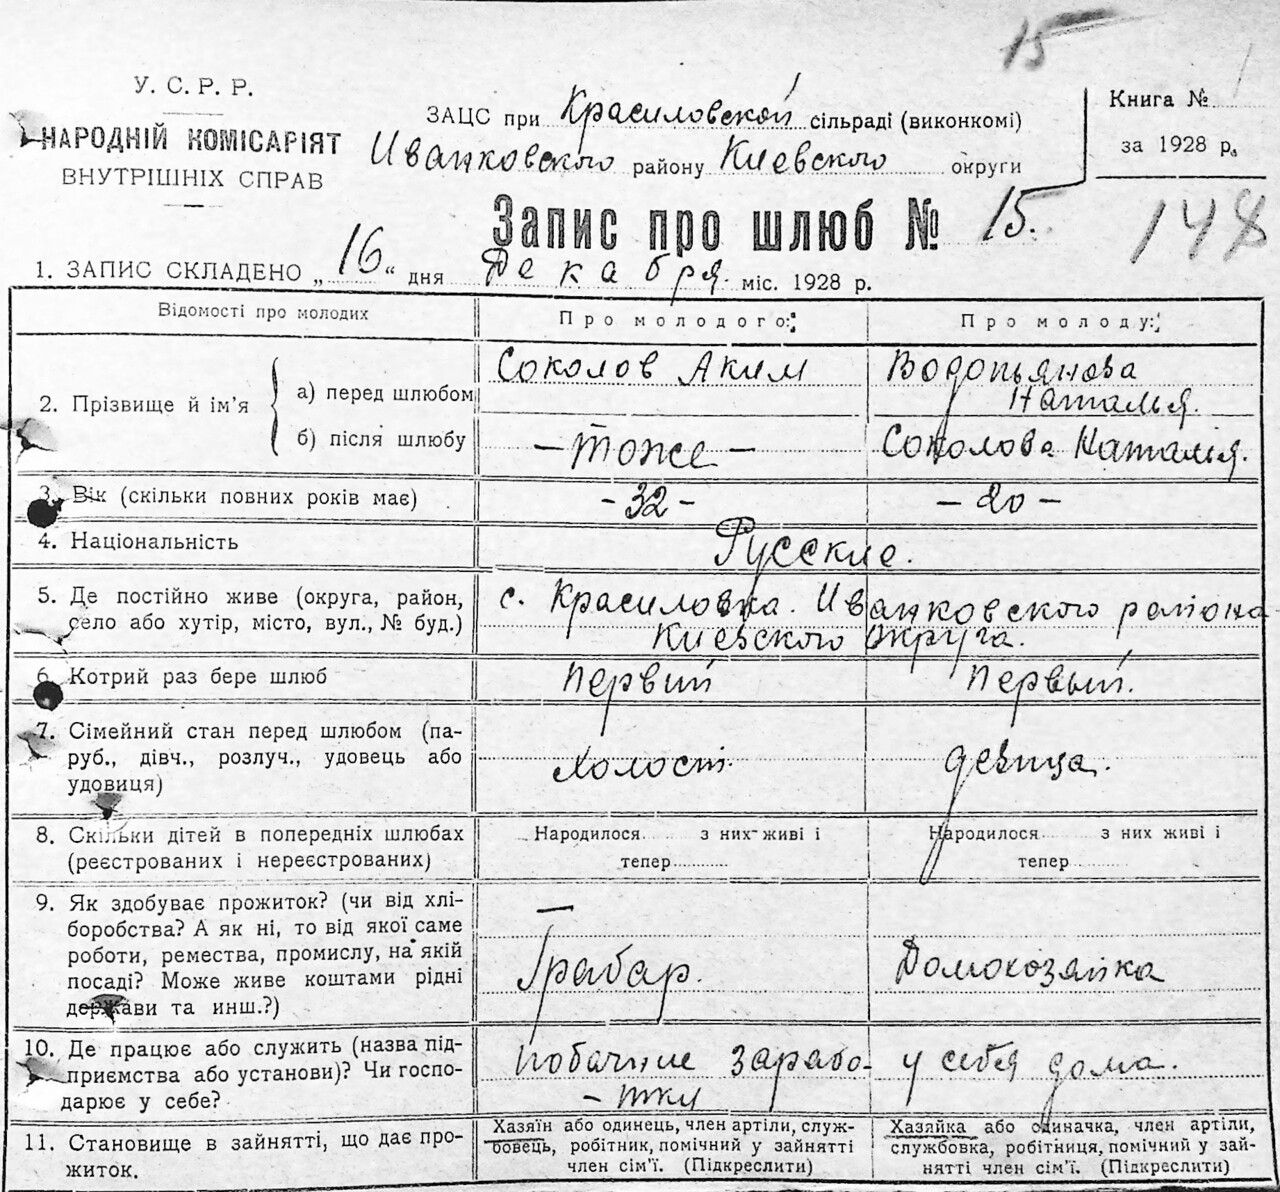 15
У. С. Р. Р.
НАРОДНІЙ КОМІСАРІЯТ
ВНУТРІШНІХ СПРАВ
ЗАЦС при Красиловской сільраді (виконкомі)
Иванковского району Киевского округи
Книга №
за 1928 р.
Запис про шлюб № 15.
148
1. ЗАПИС СКЛАДЕНО „16“ дня Декабря міс. 1928 р.
Відомості про молодих
Про молодого:
Про молоду:
2. Прізвище й ім’я
а) перед шлюбом
Соколов Аким
Водопьянова
Наталья.
б) після шлюбу
— тоже —
Соколова Наталья.
3. Вік (скільки повних років має)
- 32 -
- 20 -
4. Національність
Русские.
5. Де постійно живе (округа, район,
село або хутір, місто, вул., № буд.)
с. Красиловка. Иванковского района
Киевского округа.
6. Котрий раз бере шлюб
Первий
Первый.
7. Сімейний стан перед шлюбом (па-
руб., дівч., розлуч., удовець або
удовиця)
Холост.
девица.
8. Скільки дітей в попередніх шлюбах
(реєстрованих і нереєстрованих)
Народилося з них живі і
тепер
Народилося з них живі і
тепер
9. Як здобуває прожиток? (чи від хлі-
боробства? А як ні, то від якої саме
роботи, ремества, промислу, на якій
посаді? Може живе коштами рідні
держави та инш.?)
—
Грабар.
Домохозяйка
10. Де працює або служить (назва під-
приємства або установи)? Чи госпо-
дарює у себе?
побачние зарабо-
- тки
у себя дома.
11. Становище в зайнятті, що дає про-
житок.
Хазяїн або одинець, член артіли, служ-
бовець, робітник, помічний у зайнятті
член сім’ї. (Підкреслити)
Хазяйка або одиначка, член артіли,
службовка, робітниця, помічний у зай-
нятті член сім’ї. (Підкреслити)